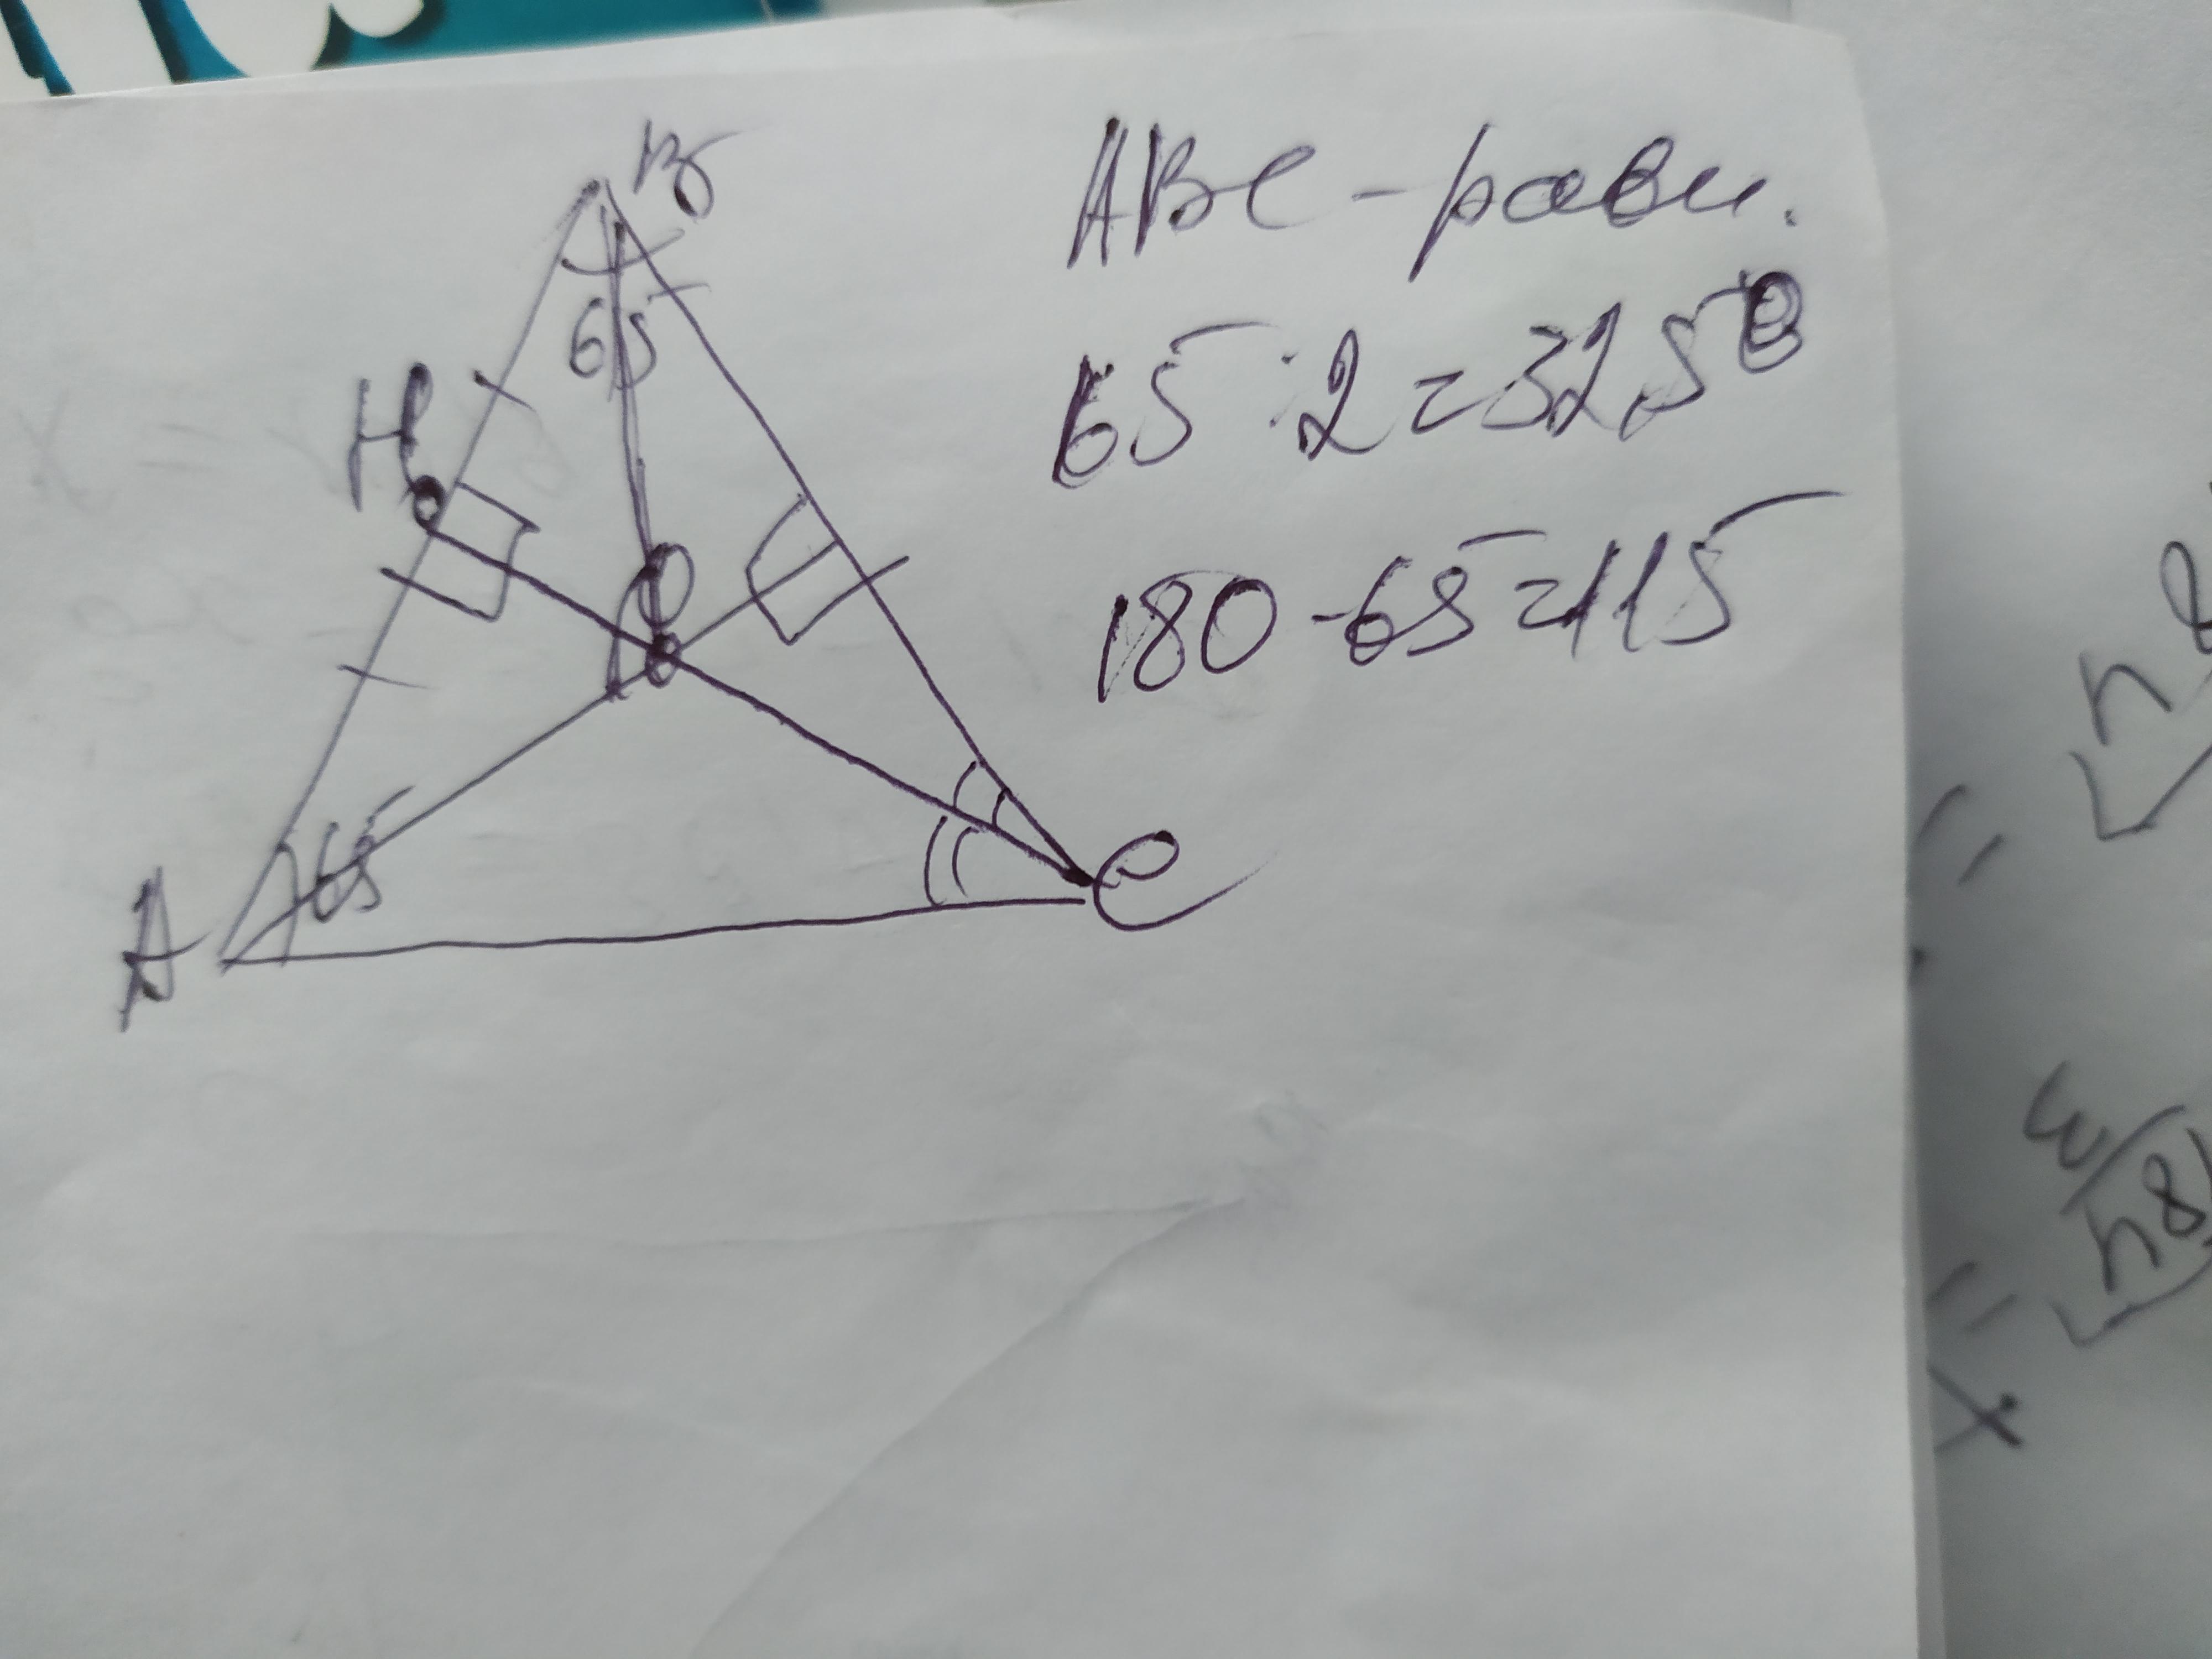 B
ABC - равн.
65
65 : 2 = 32,5°
H
O
180 - 65 = 115
65
A
C